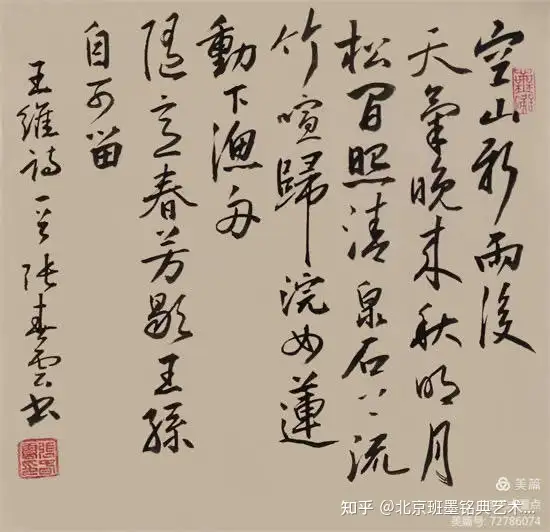 空山新雨後
天氣晚来秋明月
松間照清泉石上流
竹喧歸浣女蓮
動下漁舟
隨意春芳歇王孫
自可留
王維詩一首 張春雲書
美篇
知乎 @北京班墨铭典艺术...
美篇号: 72786074